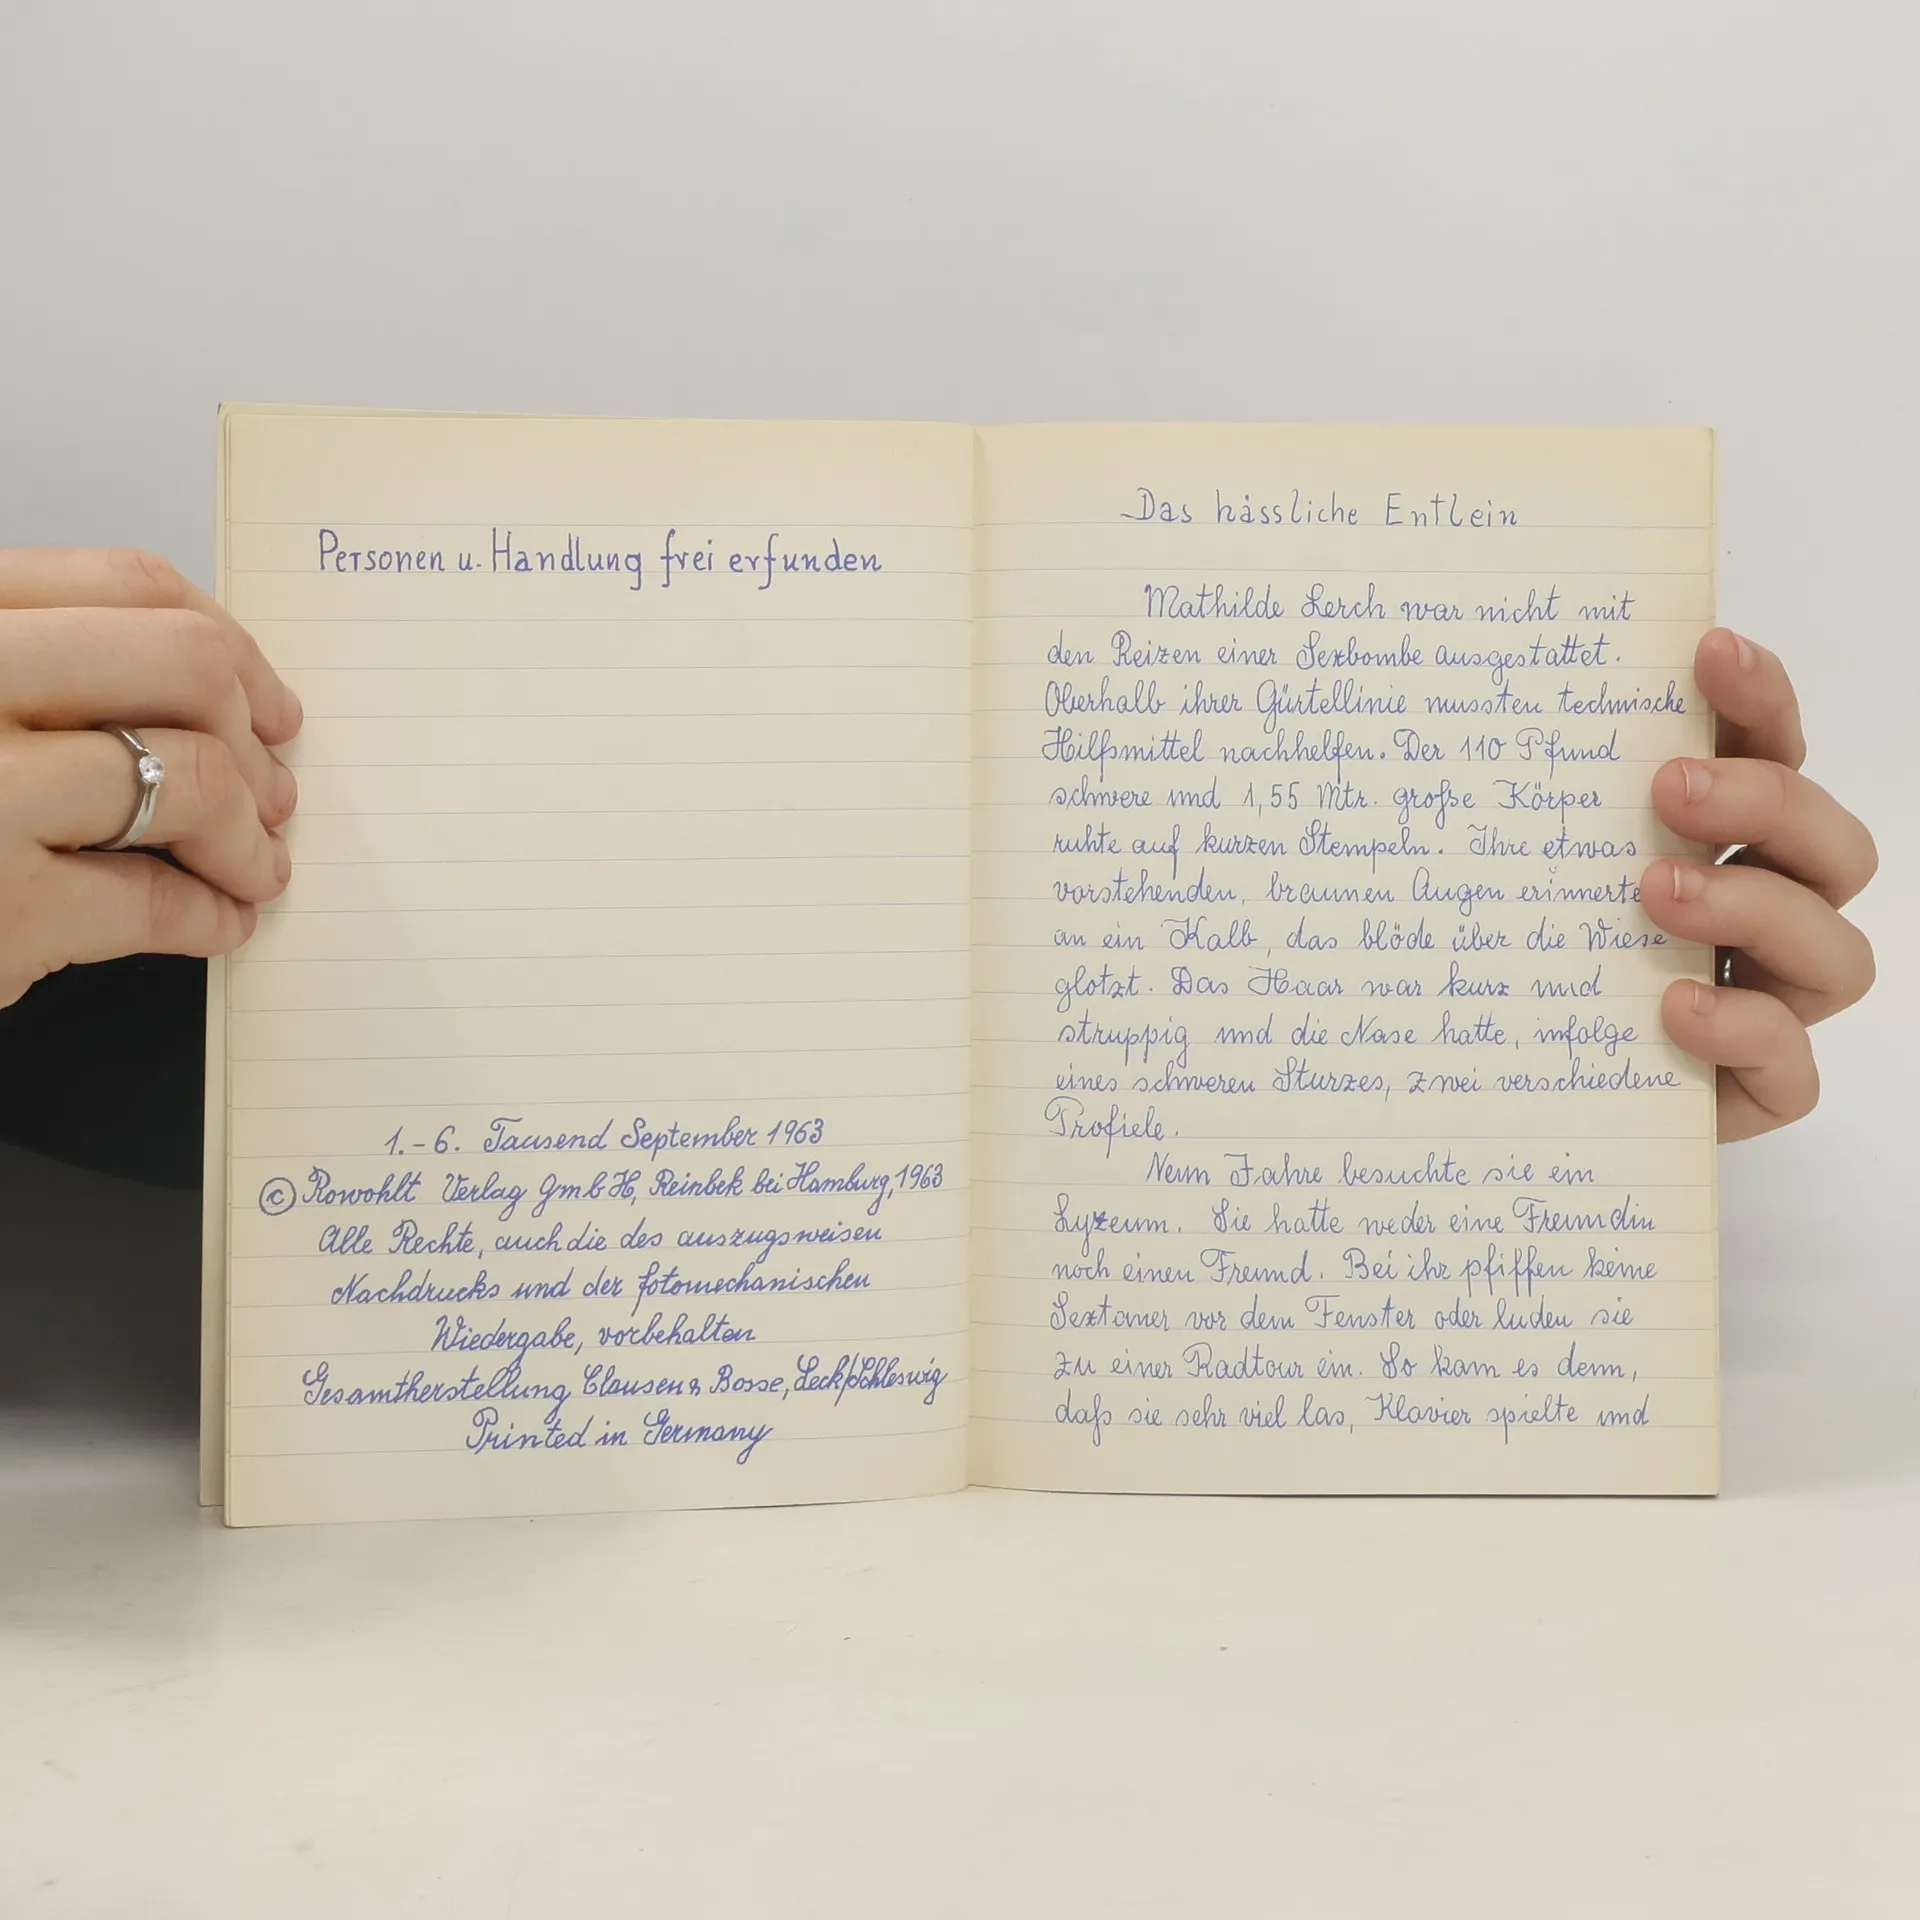 Personen u. Handlung frei erfunden
1.-6. Tausend September 1963
© Rowohlt Verlag GmbH, Reinbek bei Hamburg, 1963
Alle Rechte, auch die des auszugsweisen
Nachdrucks und der fotomechanischen
Wiedergabe, vorbehalten
Gesamtherstellung Clausen & Bosse, Leck/Schleswig
Printed in Germany
Das hässliche Entlein
Mathilde Lerch war nicht mit
den Reizen einer Sexbombe ausgestattet.
Oberhalb ihrer Gürtellinie mussten technische
Hilfsmittel nachhelfen. Der 110 Pfund
schwere und 1,55 Mtr. große Körper
ruhte auf kurzen Stempeln. Ihre etwas
vorstehenden, braunen Augen erinnerte
an ein Kalb, das blöde über die Wiese
glotzt. Das Haar war kurz und
struppig und die Nase hatte, infolge
eines schweren Sturzes, zwei verschiedene
Profiele.
Neun Jahre besuchte sie ein
Lyzeum. Sie hatte weder eine Freundin
noch einen Freund. Bei ihr pfiffen keine
Sextaner vor dem Fenster oder luden sie
zu einer Radtour ein. So kam es denn,
daß sie sehr viel las, Klavier spielte und